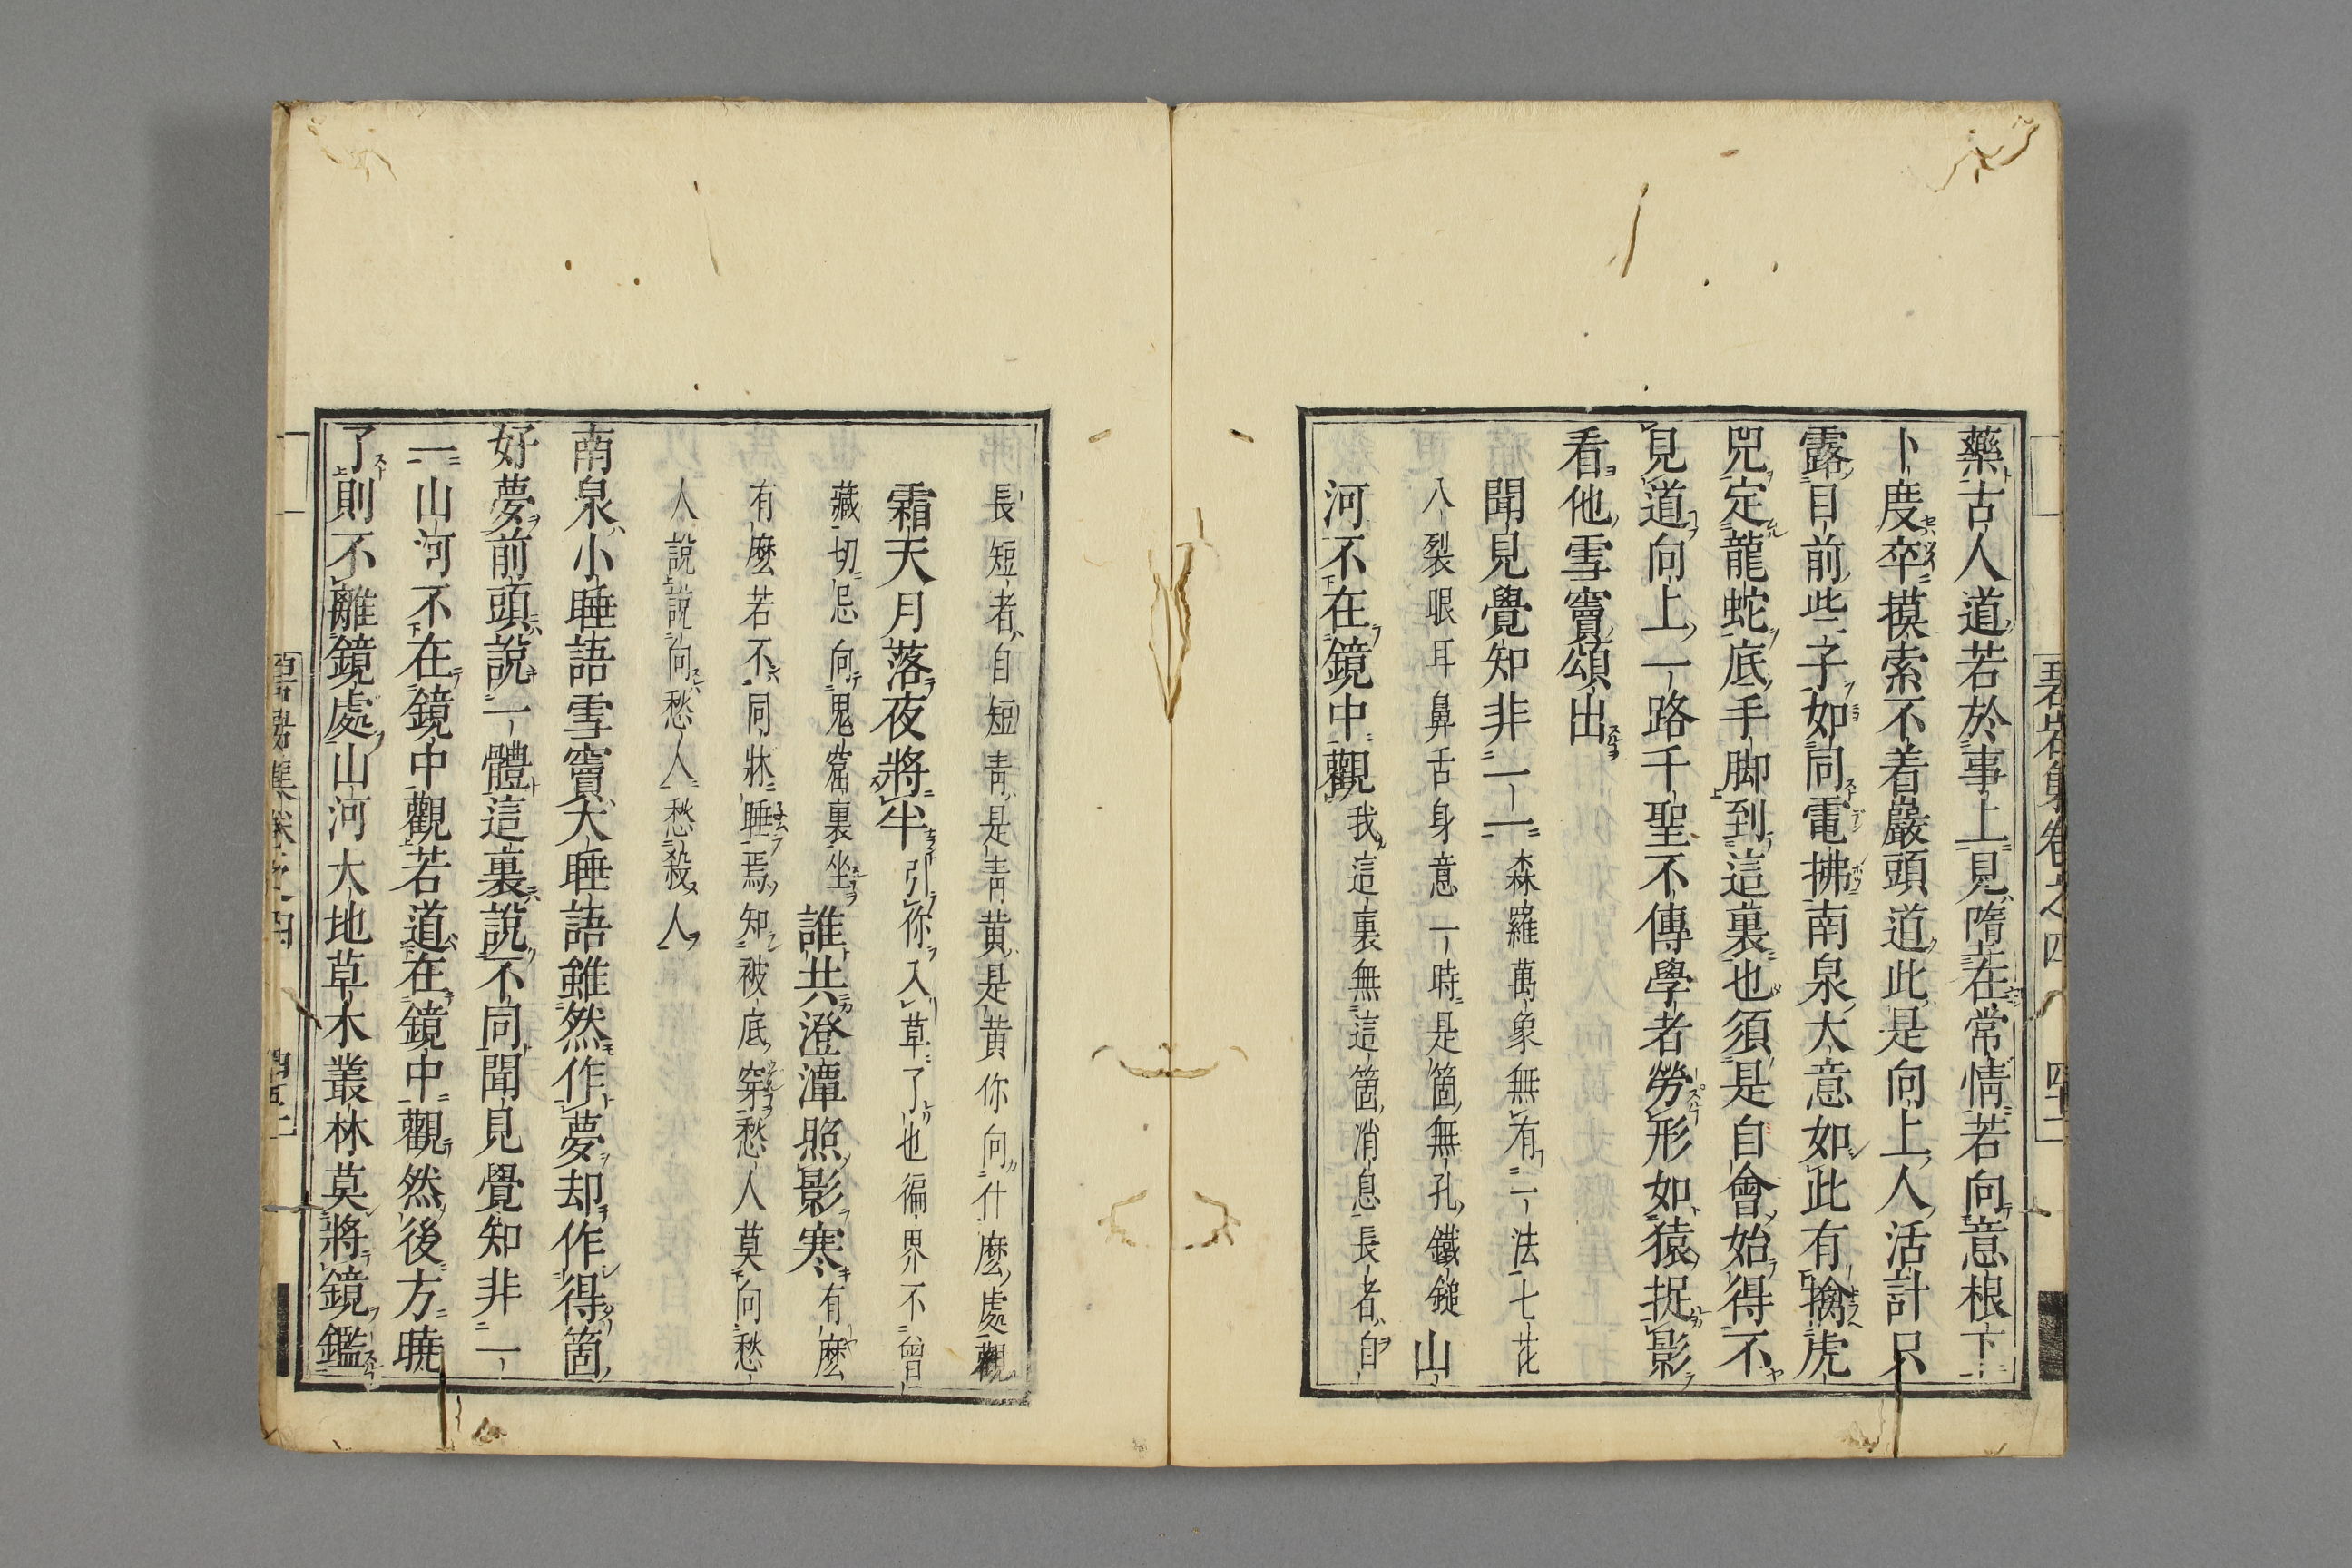 藥古人道若於事上見墮在常情若向意根下
卜度卒摸索不着巖頭道此是向上人活計只
露目前些子如同電拂南泉大意如此有擒虎
兕定龍蛇底手脚到這裏也須是自會始得不
見道向上一路千聖不傳學者勞形如猿捉影
看他雪竇頌出
聞見覺知非一一森羅萬象無有一法七花
八裂眼耳鼻舌身意一時是箇無孔鐵鎚山
河不在鏡中觀我這裏無這箇消息長者自
碧岩集卷之四
長短者自短靑是靑黄是黄你向什麽處觀
霜天月落夜將半引你入草了也徧界不曾
藏切忌向鬼窟裏坐誰共澄潭照影寒有麽
有麽若不同牀睡焉知被底穿愁人莫向愁
人說說向愁人愁殺人
南泉小睡語雪竇大睡語雖然作夢却作得箇
好夢前頭說一體這裏說不同聞見覺知非一
一山河不在鏡中觀若道在鏡中觀然後方曉
了則不離鏡處山河大地草木叢林莫將鏡鑑